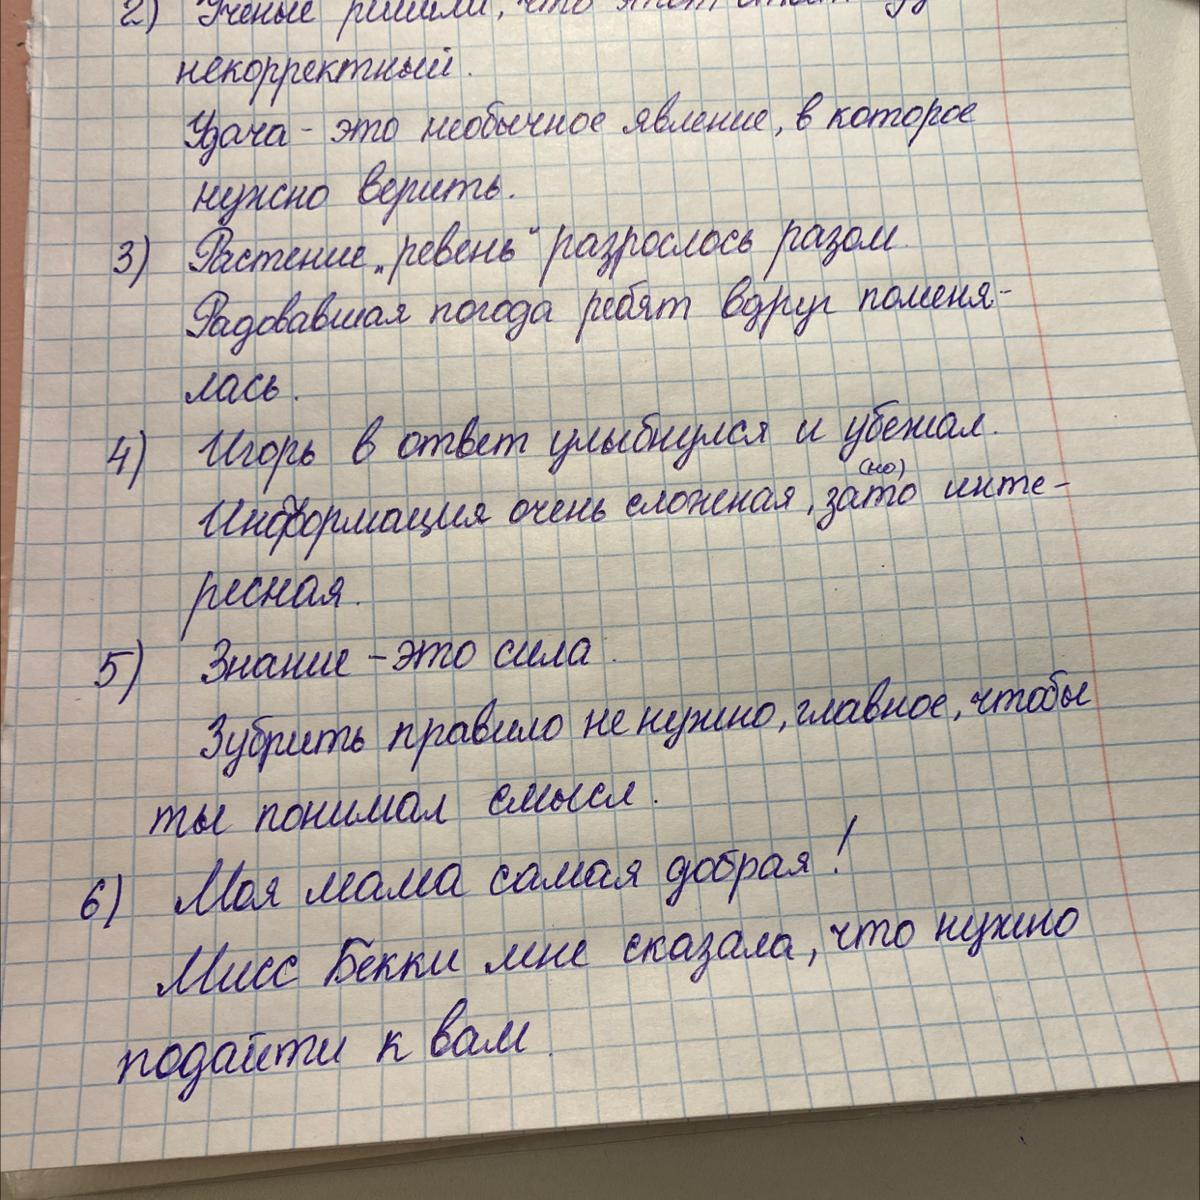 2) Учёные решили, что этот
некорректный.
Удача - это необычное явление, в которое
нужно верить.
3) Растение „ревень“ разрослось разом.
Радовавшая погода ребят вдруг поменя-
лась.
4) Игорь в ответ улыбнулся и убежал.
(но)
Информация очень сложная, зато инте-
ресная.
5) Знание - это сила.
Зубрить правило не нужно, главное, чтобы
ты понимал смысл.
6) Моя мама самая добрая!
Мисс Бекки мне сказала, что нужно
подайти к вам.